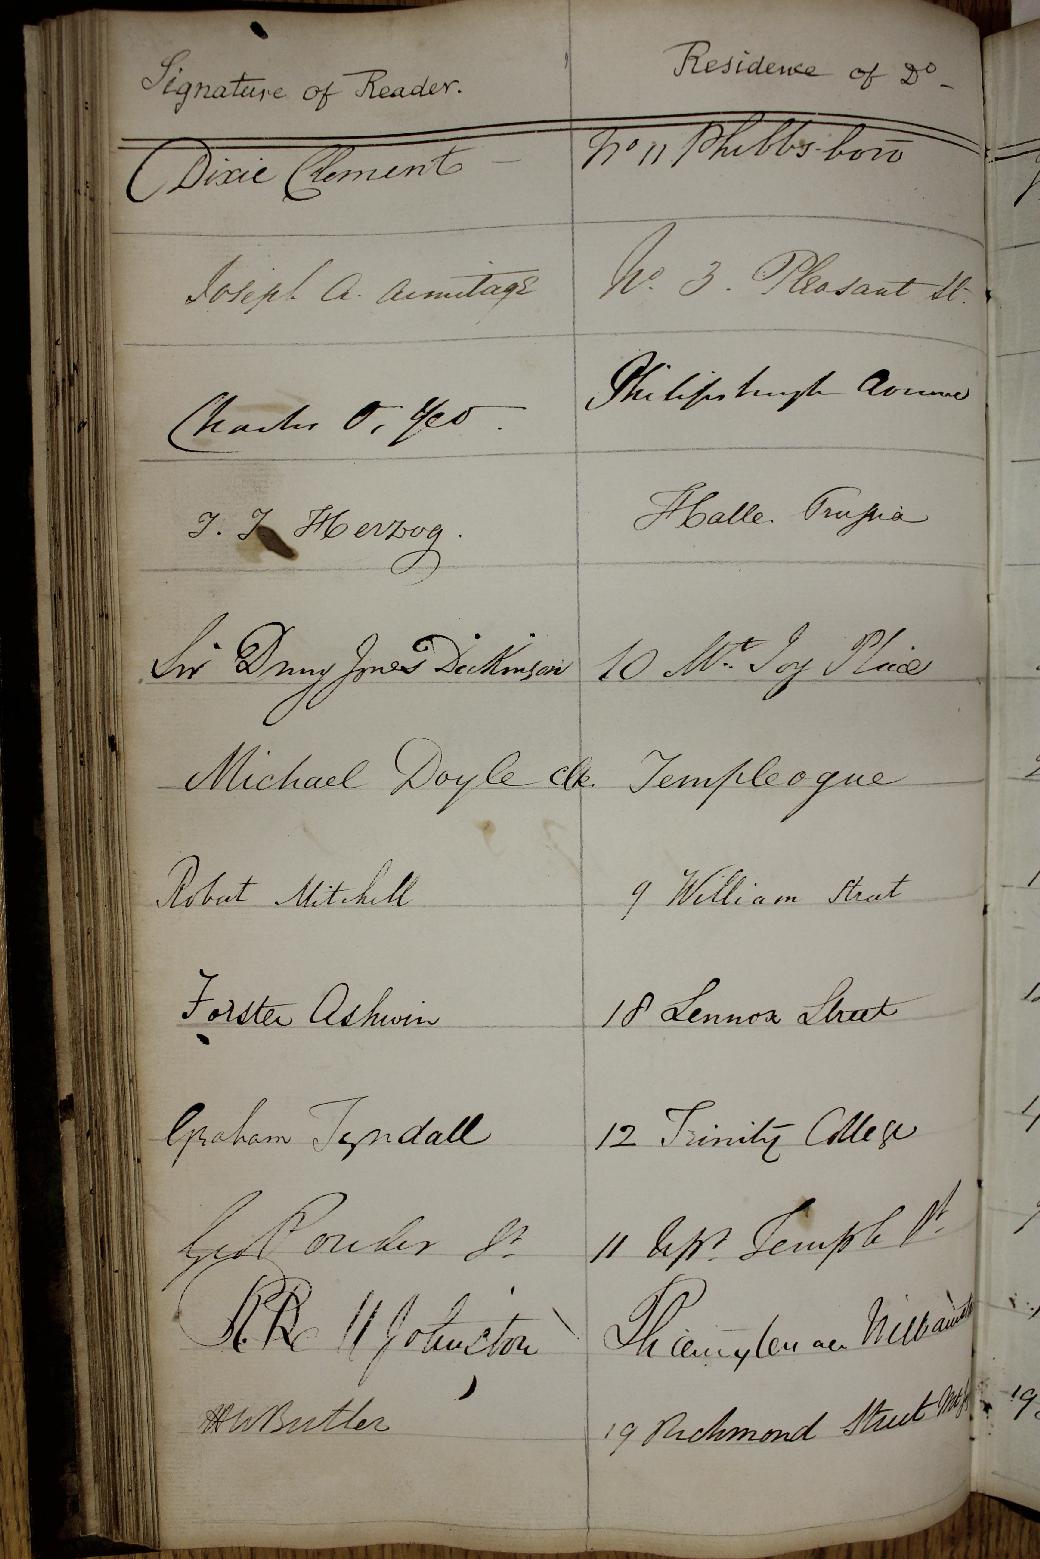 Signature of Reader. Residence of Do
Dixie Clement No 11 Phibbs-boro
Joseph A. Armitage No. 3. Pleasant St.
Charles O, Philipsburgh Avenue
J. J Herzog. Halle. Prussia
Sir Drury Jones Dickinson 10 Mt. Joy Place
Michael Doyle clk. Templeogue
Robert Mitchell 9 William Street
Forster Ashwin 18 Lennox Street
Graham Tyndall 12 Trinity College
Geo 11 Upr. Temple St.
H Johnston
HWButler 19 Richmond Street